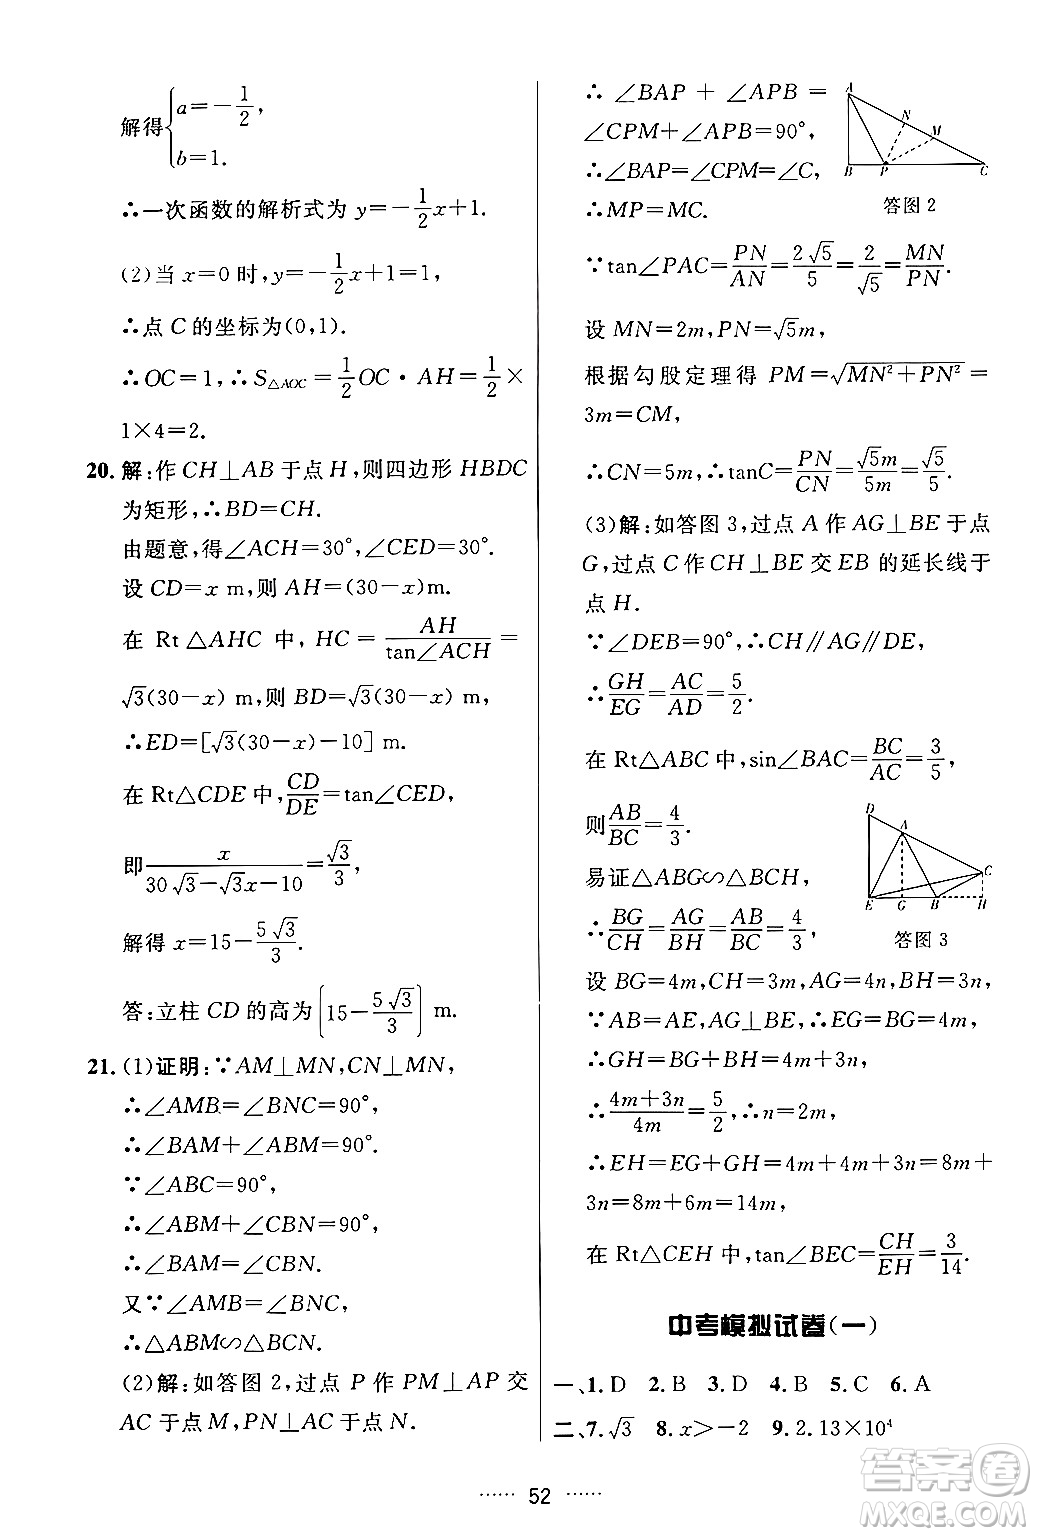 解得{a=-1/2,
b=1.
∴一次函数的解析式为 y=-1/2x+1.
(2)当 x=0 时,y=-1/2x+1=1,
∴点 C 的坐标为(0,1).
∴OC=1,∴S△AOC=1/2OC·AH=1/2×
1×4=2.
20. 解:作 CH⊥AB 于点 H,则四边形 HBDC
为矩形,∴BD=CH.
由题意,得∠ACH=30°,∠CED=30°.
设 CD=x m,则 AH=(30-x)m.
在 Rt△AHC 中,HC=AH/tan∠ACH=
√3(30-x) m,则 BD=√3(30-x) m,
∴ED=[√3(30-x)-10] m.
在 Rt△CDE 中,CD/DE=tan∠CED,
即 x/(30√3-√3x-10)=√3/3,
解得 x=15-5√3/3.
答:立柱 CD 的高为(15-5√3/3) m.
21. (1)证明:∵AM⊥MN,CN⊥MN,
∴∠AMB=∠BNC=90°,
∴∠BAM+∠ABM=90°.
∵∠ABC=90°,
∴∠ABM+∠CBN=90°,
∴∠BAM=∠CBN.
又∵∠AMB=∠BNC,
∴△ABM∽△BCN.
(2)解:如答图 2,过点 P 作 PM⊥AP 交
AC 于点 M,PN⊥AC 于点 N.
∴∠BAP+∠APB=
∠CPM+∠APB=90°,
∴∠BAP=∠CPM=∠C,
∴MP=MC.
A
N
M
B
P
C
答图 2
∵tan∠PAC=PN/AN=2√5/5=2/√5=MN/PN.
设 MN=2m,PN=√5m,
根据勾股定理得 PM=√(MN²+PN²)=
3m=CM,
∴CN=5m,∴tanC=PN/CN=√5m/5m=√5/5.
(3)解:如答图 3,过点 A 作 AG⊥BE 于点
G,过点 C 作 CH⊥BE 交 EB 的延长线于
点 H.
∵∠DEB=90°,∴CH∥AG∥DE,
∴GH/EG=AC/AD=5/2.
在 Rt△ABC 中,sin∠BAC=BC/AC=3/5,
则AB/BC=4/3.
易证△ABG∽△BCH,
∴BG/CH=AG/BH=AB/BC=4/3,
D
A
C
E
G
B
H
答图 3
设 BG=4m,CH=3m,AG=4n,BH=3n,
∵AB=AE,AG⊥BE,∴EG=BG=4m,
∴GH=BG+BH=4m+3n,
∴(4m+3n)/4m=5/2,∴n=2m,
∴EH=EG+GH=4m+4m+3n=8m+
3n=8m+6m=14m,
在 Rt△CEH 中,tan∠BEC=CH/EH=3/14.
中考模拟试卷(一)
一、1. D 2. B 3. D 4. B 5. C 6. A
二、7. √3 8. x>-2 9. 2.13×10⁴
······ 52 ······
答案圈
MXQE.COM